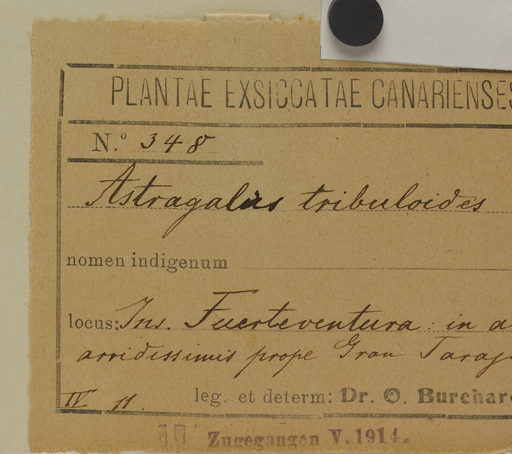 PLANTAE EXSICCATAE CANARIENSES
N.° 348
Astragalus tribuloides
nomen indigenum
locus: Ins. Fuerteventura: in a
arridissimis prope Gran Taraj
IV 11.
leg. et determ: Dr. O. Burchar
Zugegangen V. 1914.